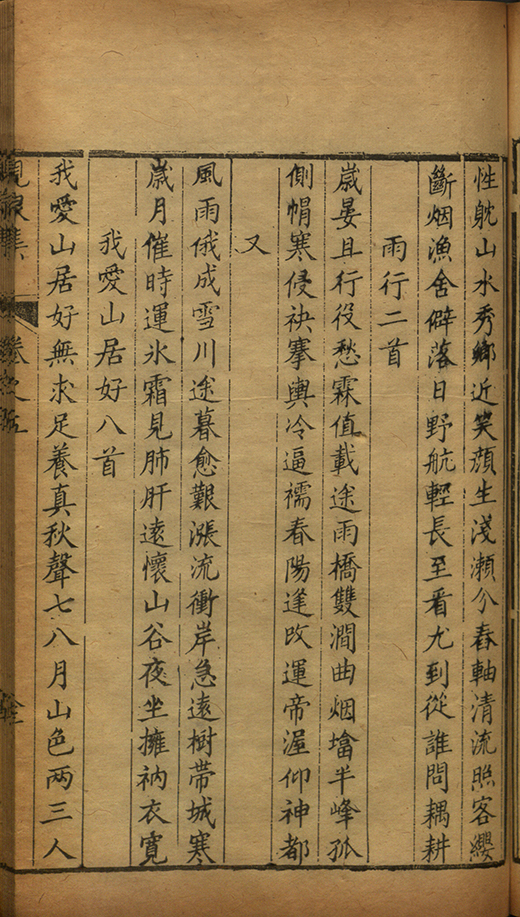 性躭山水秀鄉近笑顔生淺瀬分舂軸清流照客纓
斷烟漁舍僻落日野航輕長至看尤到從誰問耦耕
雨行二首
歲晏且行役愁霖值載途雨橋雙澗曲烟墖半峰孤
側帽寒侵袂搴輿冷逼襦春陽逢改運帝渥仰神都
又
風雨俄成雪川途暮愈艱漲流衝岸急遠樹帶城寒
歲月催時運氷霜見肺肝遠懷山谷夜坐擁衲衣寬
我愛山居好八首
我愛山居好無求足養真秋聲七八月山色兩三人